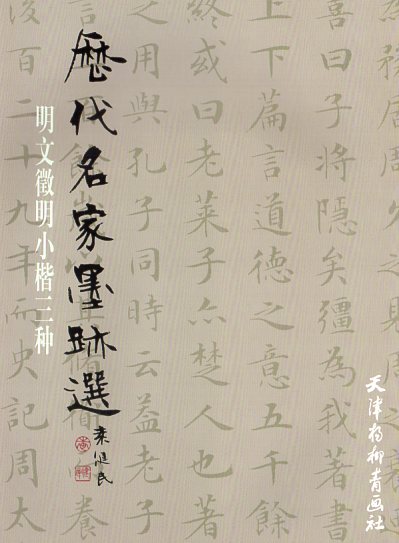 歷代名家墨跡選
明文徵明小楷三种
天津杨柳青画社
喜曰子將隱矣彊為我著書
上下篇言道德之意五千餘
終或曰老萊子亦楚人也著
之用與孔子同時云蓋老子
後百二十九年而史記周太